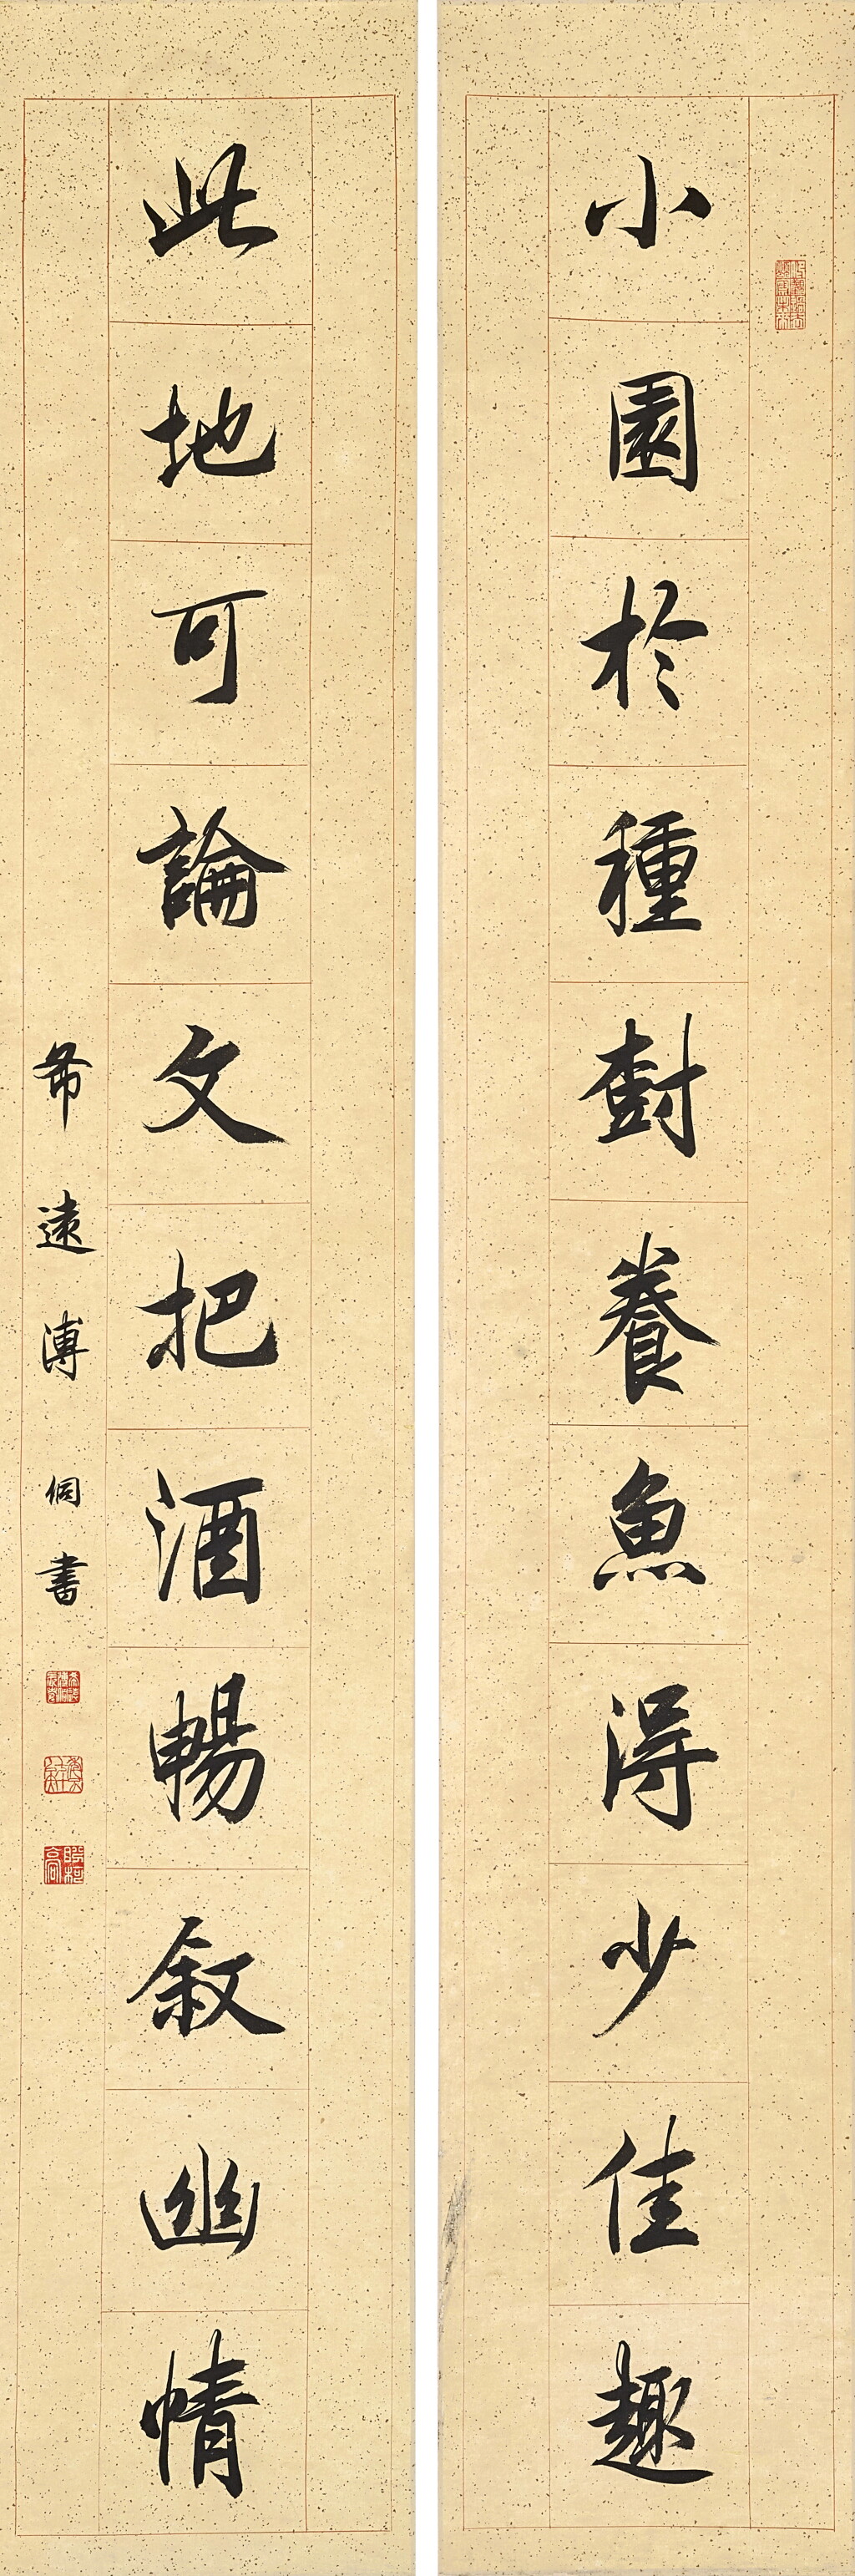 小園於種樹養魚得少佳趣
此地可論文把酒暢叙幽情
希遠溥侗書